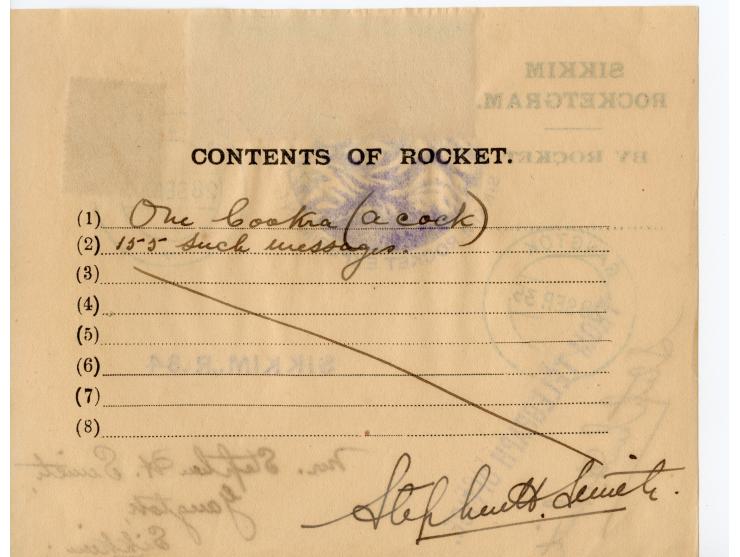 CONTENTS OF ROCKET.
(1) One Cookra (a cock)
(2) 155 such messages.
(3)
(4)
(5)
(6)
(7)
(8)
Stephen H. Smith.
SIKKIM
ROCKETGRAM.
BY ROCKET
SIKKIM.R.34
Mr. Stephen H. Smith
Gangtok
Sikkim